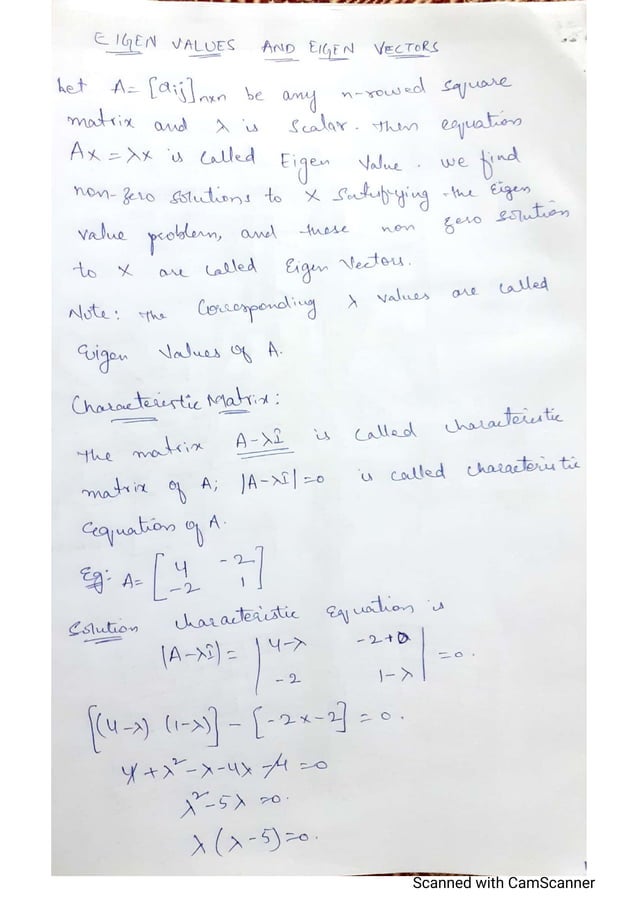 EIGEN VALUES AND EIGEN VECTORS
Let A = [aij]nxn be any n-rowed square
matrix and λ is scalar. Then equation
AX = λX is called Eigen Value. we find
non-zero solutions to X satisfying the Eigen
value problem, and these non zero solution
to X are called Eigen Vectors.
Note: The Corresponding λ values are called
Eigen Values of A.
Characteristic Matrix:
The matrix A-λI is called characteristic
matrix of A; |A-λI|=0 is called characteristic
equation of A.
Eg: A = [4 -2
-2 1]
Solution characteristic Equation is
|A-λI| = |4-λ -2+0
-2 1-λ| = 0.
[(4-λ) (1-λ)] - [-2x-2] = 0.
4 + λ² - λ - 4λ - 4 = 0
λ² - 5λ = 0.
λ(λ-5) = 0.
Scanned with CamScanner